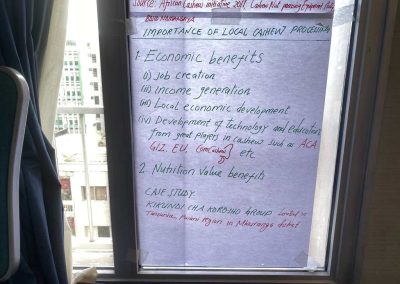 Source: African Cashew initiative 2011. Cashew Nut processing Equipment Study
IMPORTANCE OF LOCAL CASHEW PROCESSING
1. Economic benefits
(i) Job creation
(ii) Income generation
(iii) Local economic development
(iv) Development of technology and education
from great players in cashew such as ACA
GIZ, EU, etc
2. Nutrition value benefits
CASE STUDY.
KIKUNDI CHA KOROSHO GROUP located in
Tanzania, Pwani region in Mkuranga district